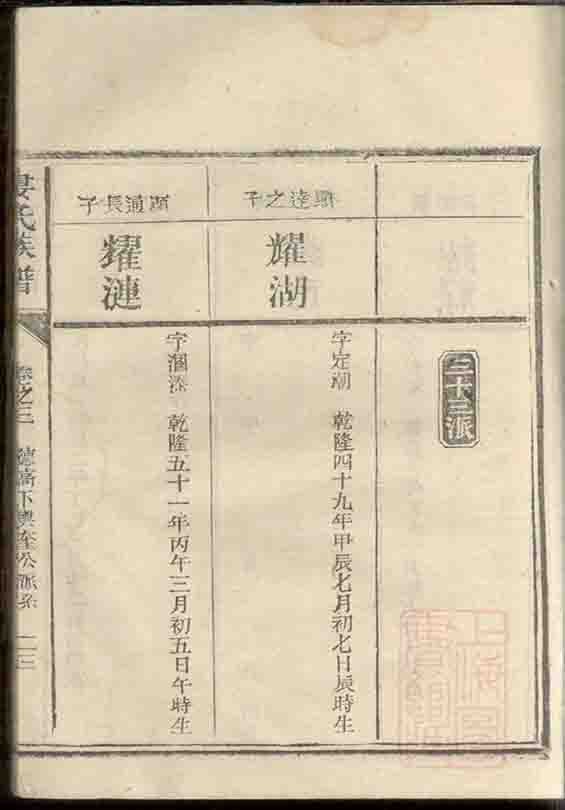 三十三派
顯達之子
耀湖
字定潮 乾隆四十九年甲辰七月初七日辰時生
顯通長子
耀漣
字涸漈 乾隆五十一年丙午三月初五日午時生
婁氏族譜
卷之三
公派系
上海圖書館藏